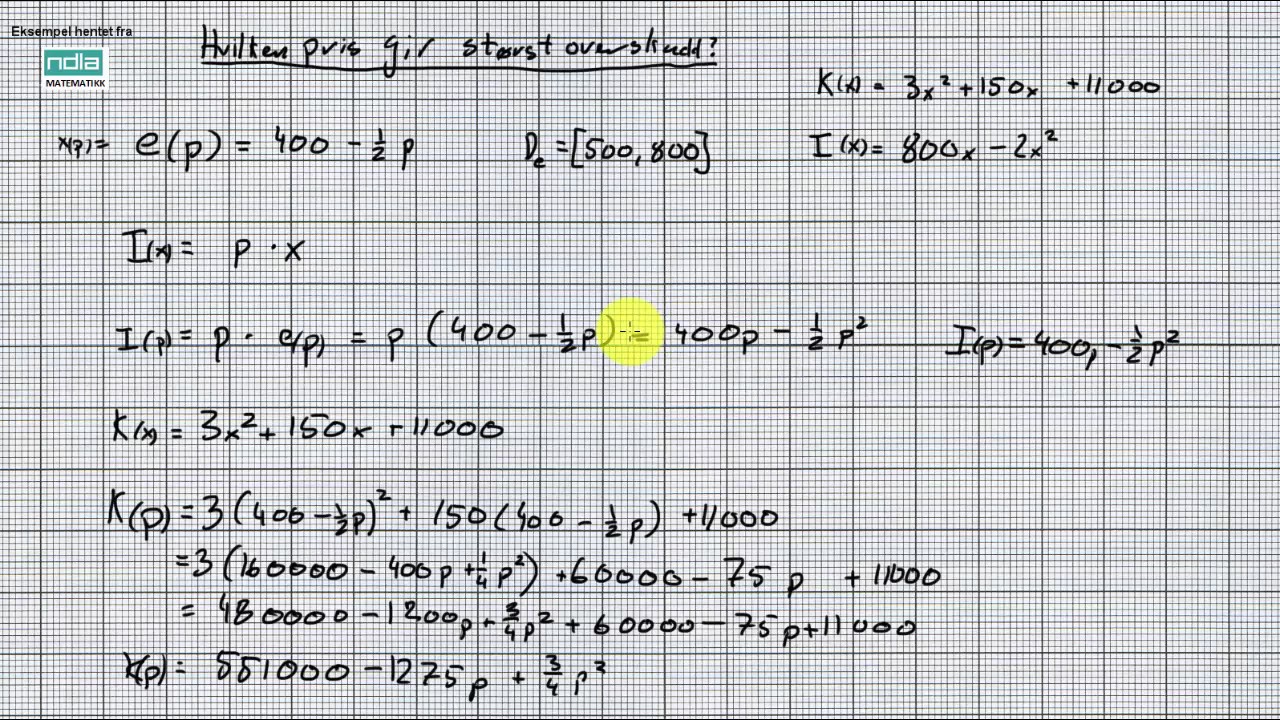 Eksempel hentet fra
ndla
MATEMATIKK
Hvilken pris gir størst overskudd?
K(x) = 3x² + 150x + 11000
x(p) = e(p) = 400 - ½ p
Dₑ = [500, 800]
I(x) = 800x - 2x²
I(x) = p · x
I(p) = p · e(p) = p (400 - ½p) = 400p - ½ p²
I(p) = 400p - ½p²
K(x) = 3x² + 150x + 11000
K(p) = 3(400 - ½p)² + 150(400 - ½p) + 11000
= 3(160000 - 400p + ¼p²) + 60000 - 75p + 11000
= 480000 - 1200p + ¾p² + 60000 - 75p + 11000
K(p) = 551000 - 1275p + ¾p²